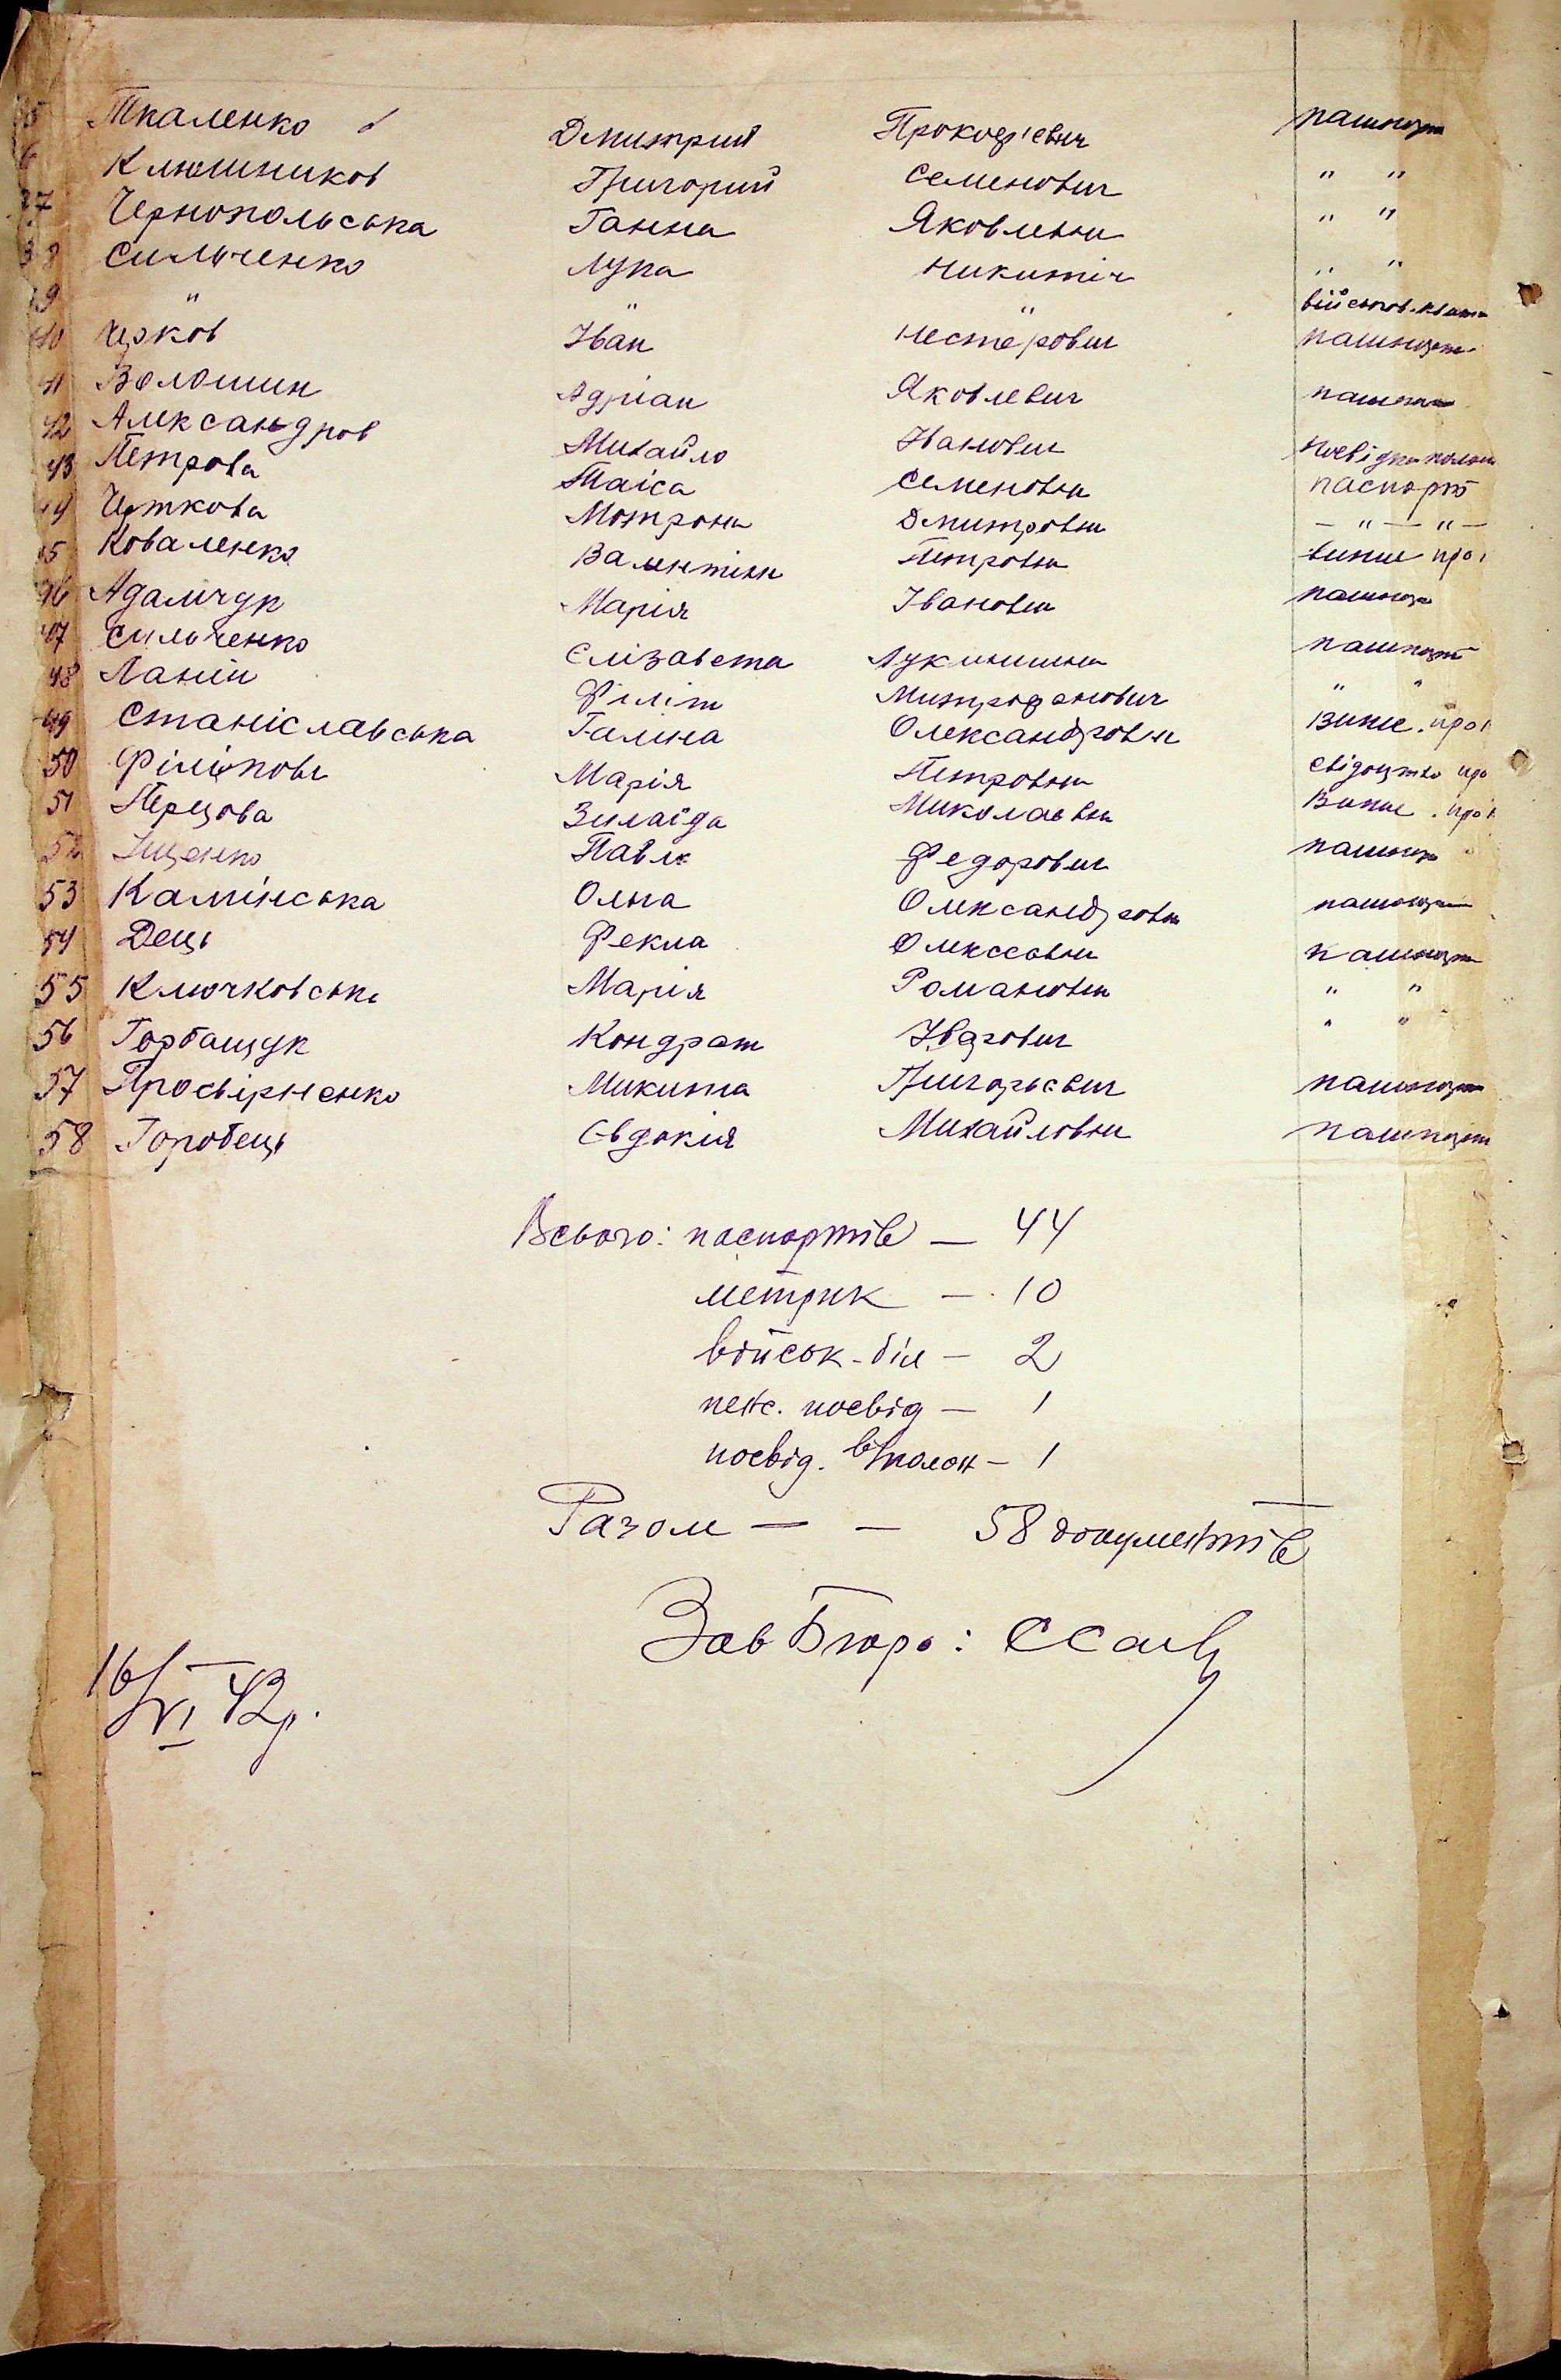 Ткаленко Дмитрий Прокоф'євич пашпорт
Ключников Григорий Семенович " "
37 Чернопольська Ганна Яковлевна " "
38 Сильченко Лука Никитіч " "
39 " " " військов. квит
40 Іван Нестерович пашпорт
41 Волошин Адріан Яковлевич пашпорт
42 Александров Михайло Іванович посвідка полон
43 Петрова Таіса Семеновна паспорт
44 Чуткова Мотрона Дмитровна — " — " —
45 Коваленко Валентіна Петровна випис про
46 Адамчук Марія Івановна пашпорт
47 Сильченко Єлізавета Лукинишна пашпорт
48 Ланін Філіп Митрофанович " "
49 Станіславська Галина Олександровна Випис. про
50 Філіпова Марія Петровна свідоцтво про
51 Перцова Зинаїда Миколаєвна Випис. про
52 Іщенко Павло Федорович пашпорт
53 Камінська Ольга Олександровна пашпорт
54 Дець Фекла Олексєєвна пашпорт
55 Клюичковська Марія Романовна " "
56 Горбащук Кондрат " "
57 Просвірненко Микита Григорьєвич пашпорт
58 Горобець Євдокія Михайловна пашпорт
Всього: паспортів — 44
метрик — 10
військ-біл — 2
пенс. посвід — 1
посвід. в/полон — 1
Разом — — 58 документів
Зав Бюро:
16/VI 42р.